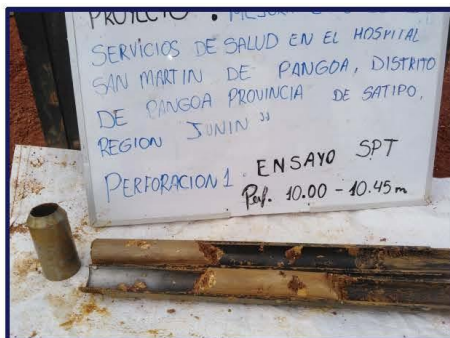 PROYECTO :
SERVICIOS DE SALUD EN EL HOSPITAL
SAN MARTIN DE PANGOA, DISTRITO
DE PANGOA PROVINCIA DE SATIPO,
REGION JUNIN"
ENSAYO SPT
PERFORACION 1
Perf. 10.00 - 10.45 m